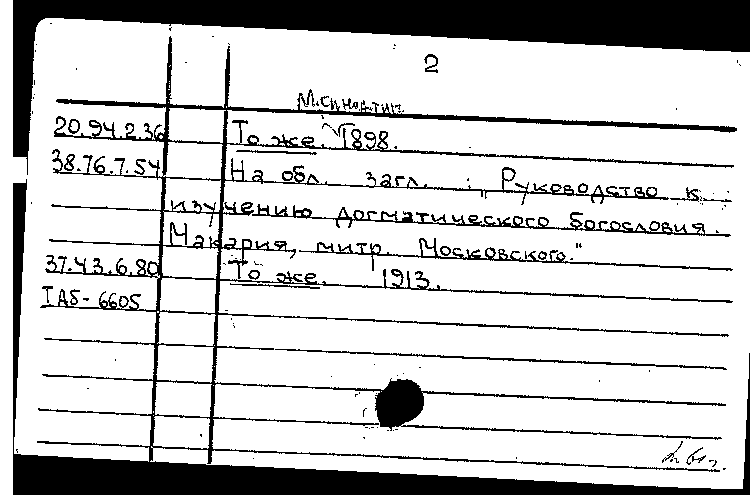 2
М. Синод. тип.
20.94.2.36 То же. 1898.
38.76.7.54 На обл. загл.: „Руководство к
изучению догматического богословия.
Макария, митр. Московского."
37.43.6.80 То же. 1913.
IАБ-6605